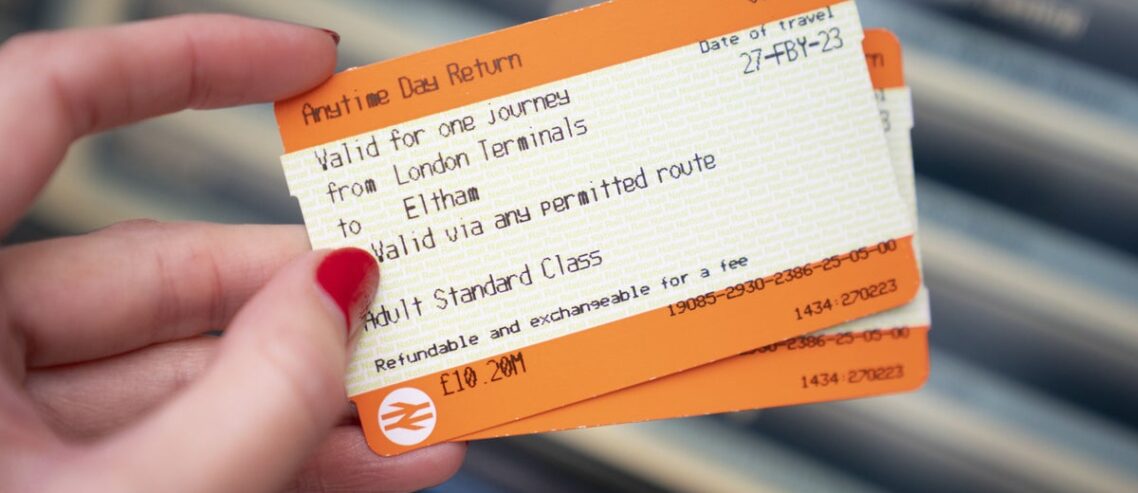 Anytime Day Return
Date of travel
27-FBY-23
Valid for one journey
from London Terminals
to Eltham
Valid via any permitted route
Adult Standard Class
Refundable and exchangeable for a fee
19085-2930-2386-25-05-00
£10.20M
1434:270223
-2386-25-05-00
1434:270223